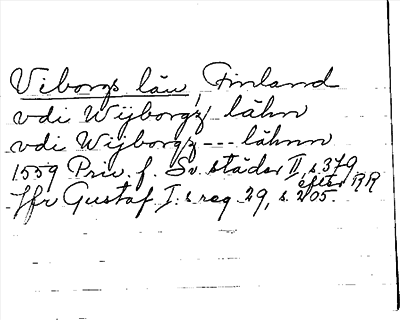 Viborgs län, Finland
vdi Wijborgz lähn
vdi Wijborgz --- lähnn
1559 Priv. f. Sv. städer II, s. 379
efter RR
Jfr Gustaf I:s reg. 29, s. 205.